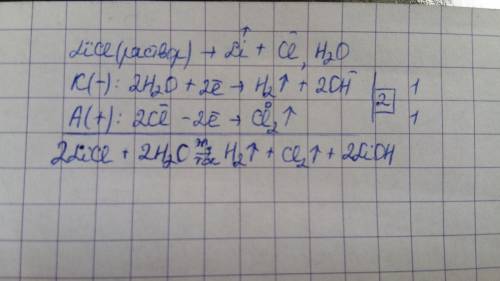 LiCl (раствор) → Li⁺ + Cl⁻, H₂O
K(-): 2H₂O + 2ē → H₂↑ + 2OH⁻ | 2 | 1
A(+): 2Cl⁻ - 2ē → Cl₂⁰↑ | 1
2LiCl + 2H₂O эл. ток → H₂↑ + Cl₂↑ + 2LiOH